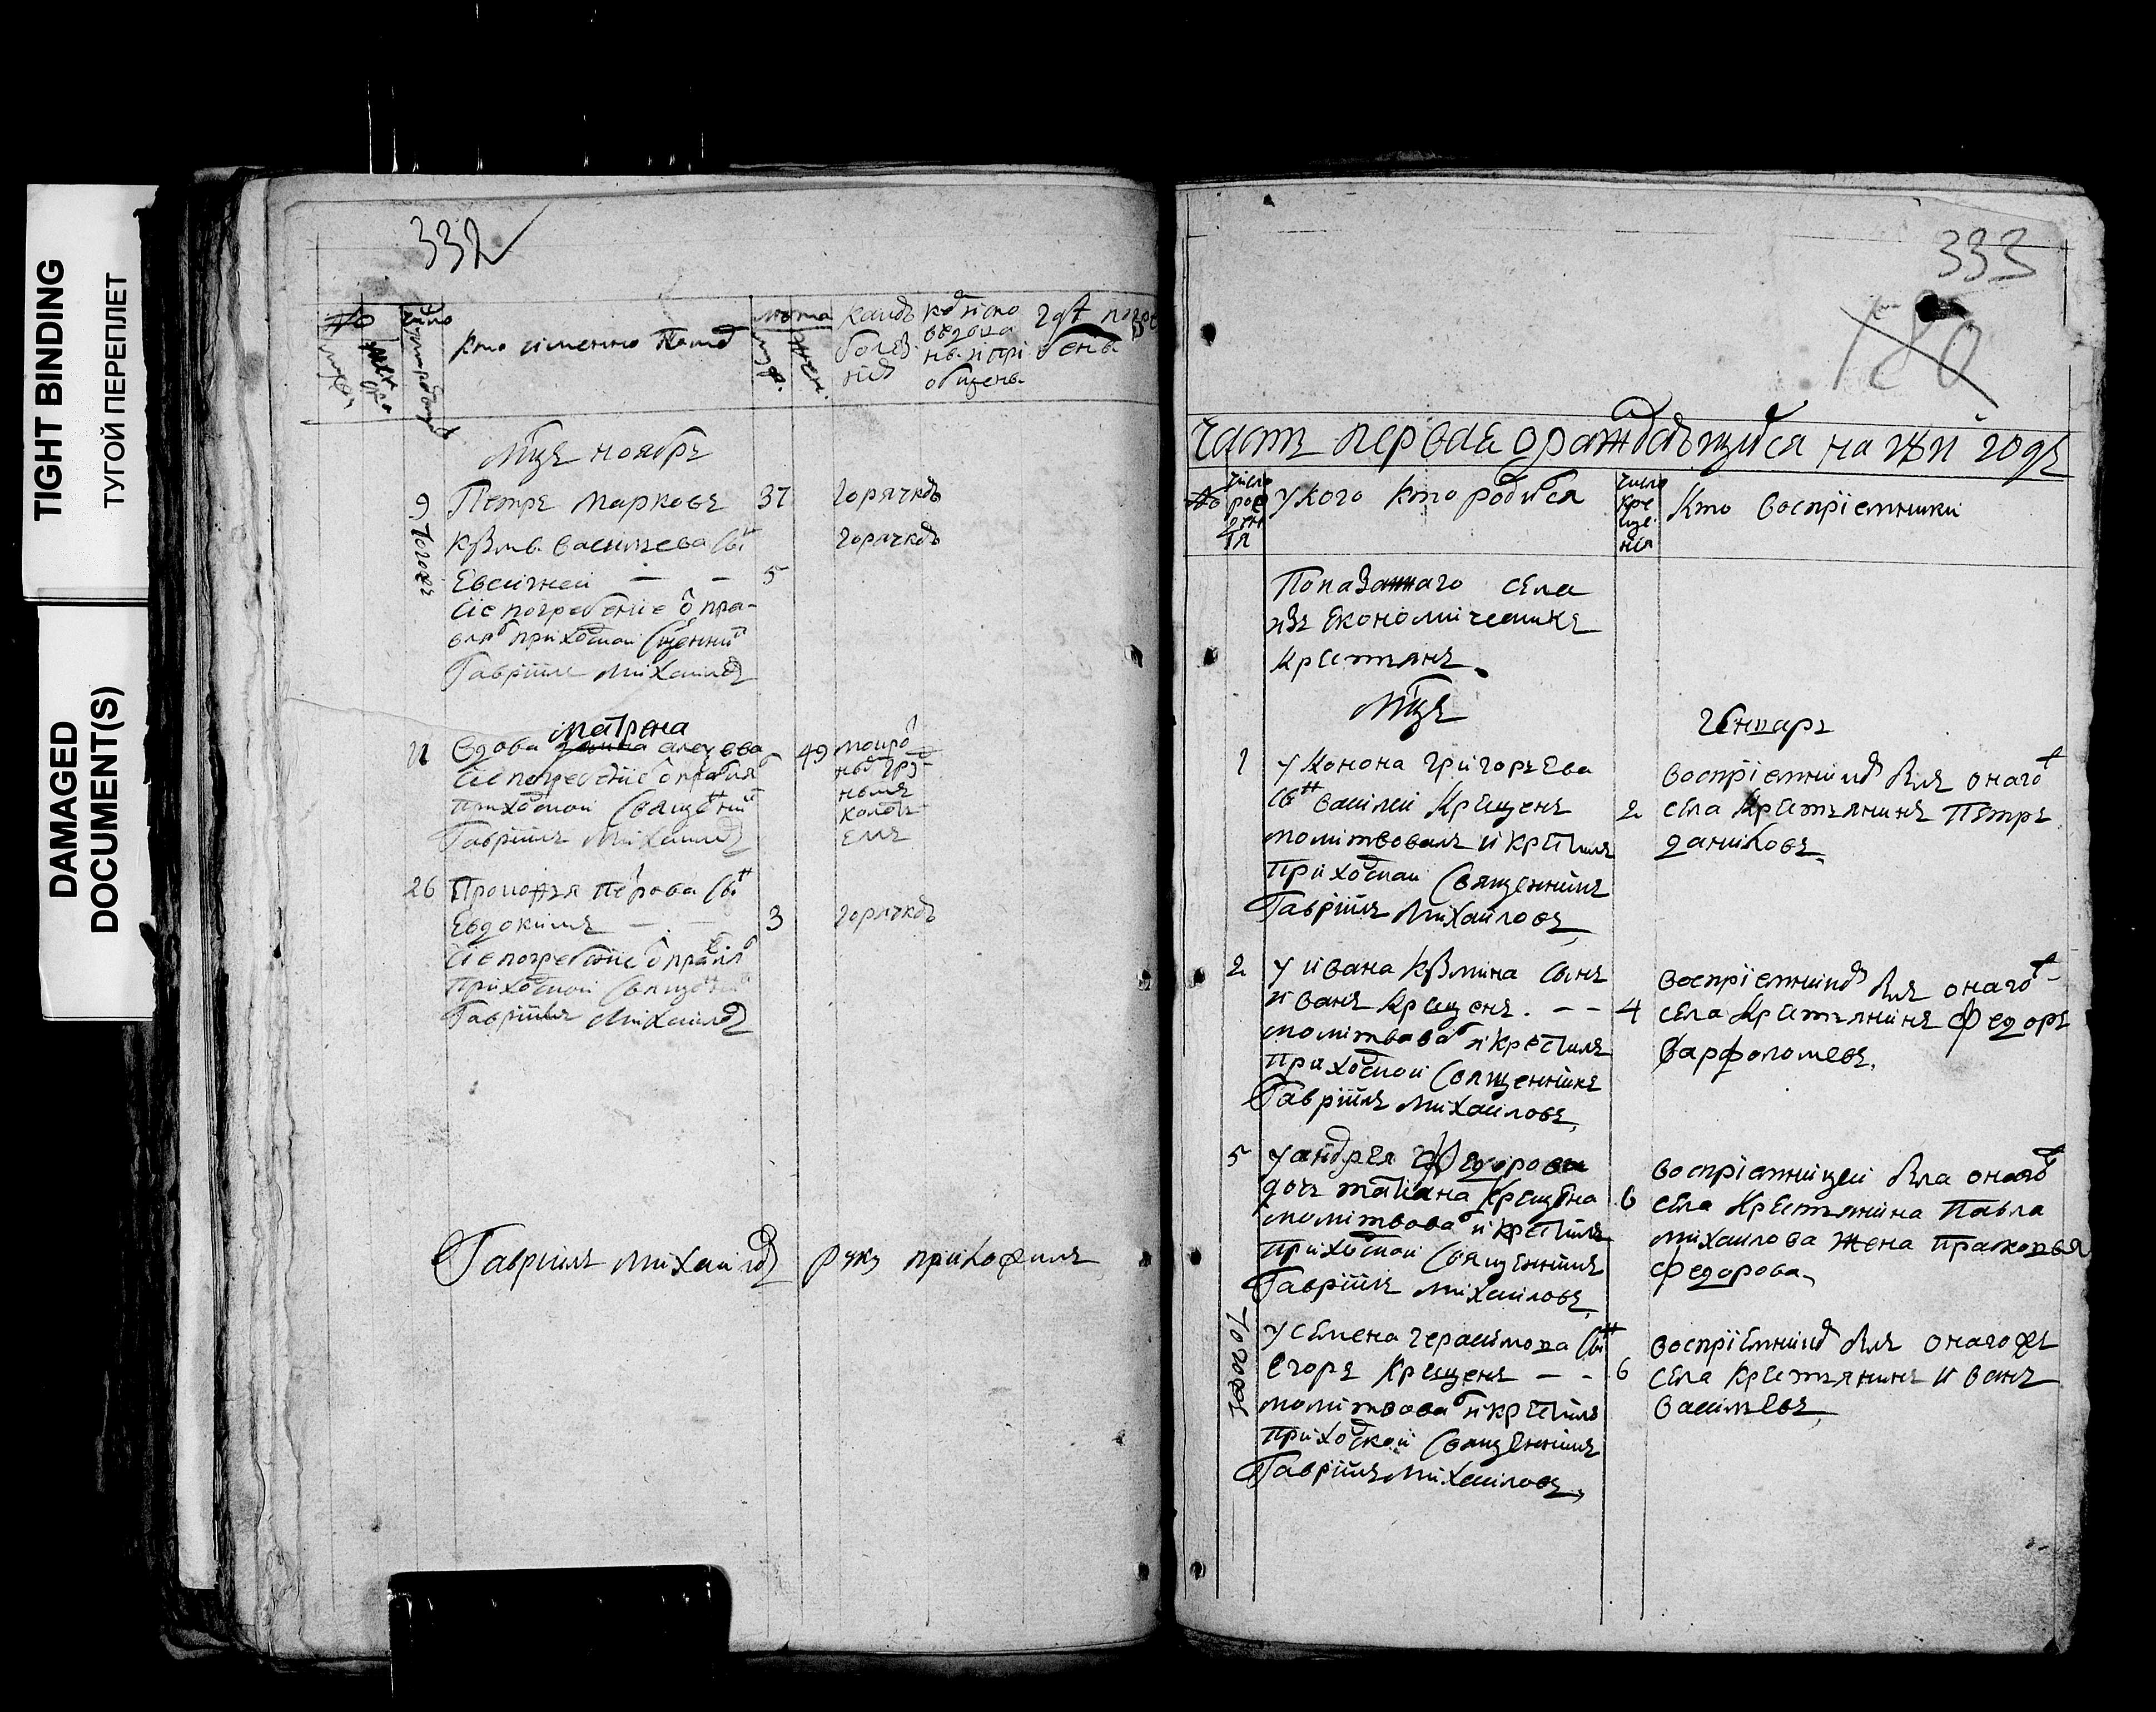 TIGHT BINDING
ТУГОЙ ПЕРЕПЛЕТ
DAMAGED
DOCUMENT(S)
332
кто имянно помр
лѣта
муж.
жен.
какою
болез
нію
мцъ ноябрь
9 Петръ Марковъ 37 горячкою
Тогожъ Кузмы Васильева снъ горячкою
Евсигней — — 5
сіе погребеніе опра-
влялъ приходской священникъ
Гавріилъ Михаиловъ
Матрена
11 вдова алеѯеева 49
сіе погребеніе оправлялъ
приходской священникъ
Гавріилъ Михаиловъ
26 Прокофья Петрова снъ
Евдокимъ — — 3 горячкою
сіе погребеніе оправлялъ
приходской священникъ
Гавріилъ Михаиловъ
Гавріилъ Михаиловъ руку приложилъ
333
180
часть первая о раждающихся на годъ
№ число рождения у кого кто родился число крещения кто воспріемники
Показаннаго села
изъ Економическихъ
крестьянъ
мцъ генварь
1 у Конона Григорьева
снъ Василей крещенъ 2
молитвовалъ и крестилъ
приходской священникъ
Гавріилъ Михайловъ
воспріемникъ былъ онаго ж
села крестьянинъ Петръ
Даниловъ
2 у Ивана Кузмина сынъ
Иванъ крещенъ. — — 4
молитвовалъ и крестилъ
приходской священникъ
Гавріилъ Михаиловъ
воспріемникъ былъ онаго ж
села крестьянинъ Федоръ
Варфоломѣевъ
5 у Андрея Федорова
дочь Татиана крещена 6
молитвовалъ и крестилъ
приходской священникъ
Гавріилъ Михаиловъ
воспріемницей была онаго ж
села крестьянина Павла
Михаилова жена Праковья
Федорова
Тогожъ у Семена Герасимова снъ
Егоръ крещенъ — — 6
молитвовалъ и крестилъ
приходской священникъ
Гавріилъ Михаиловъ
воспріемникъ былъ онагожъ
села крестьянинъ Иванъ
Васильевъ